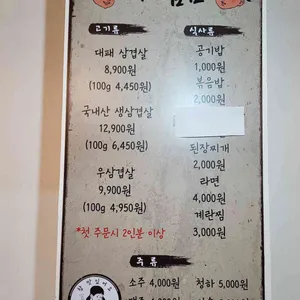 고기류
대패 삼겹살
8,900원
(100g 4,450원)
국내산 생삼겹살
12,900원
(100g 6,450원)
우삼겹살
9,900원
(100g 4,950원)
*첫 주문시 2인분 이상
식사류
공기밥
1,000원
볶음밥
2,000원
된장찌개
2,000원
라면
4,000원
계란찜
3,000원
주 류
소주 4,000원
청하 5,000원